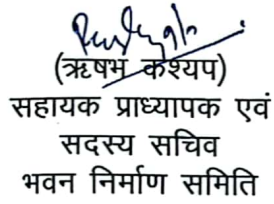 (ऋषभ कश्यप)
सहायक प्राध्यापक एवं
सदस्य सचिव
भवन निर्माण समिति